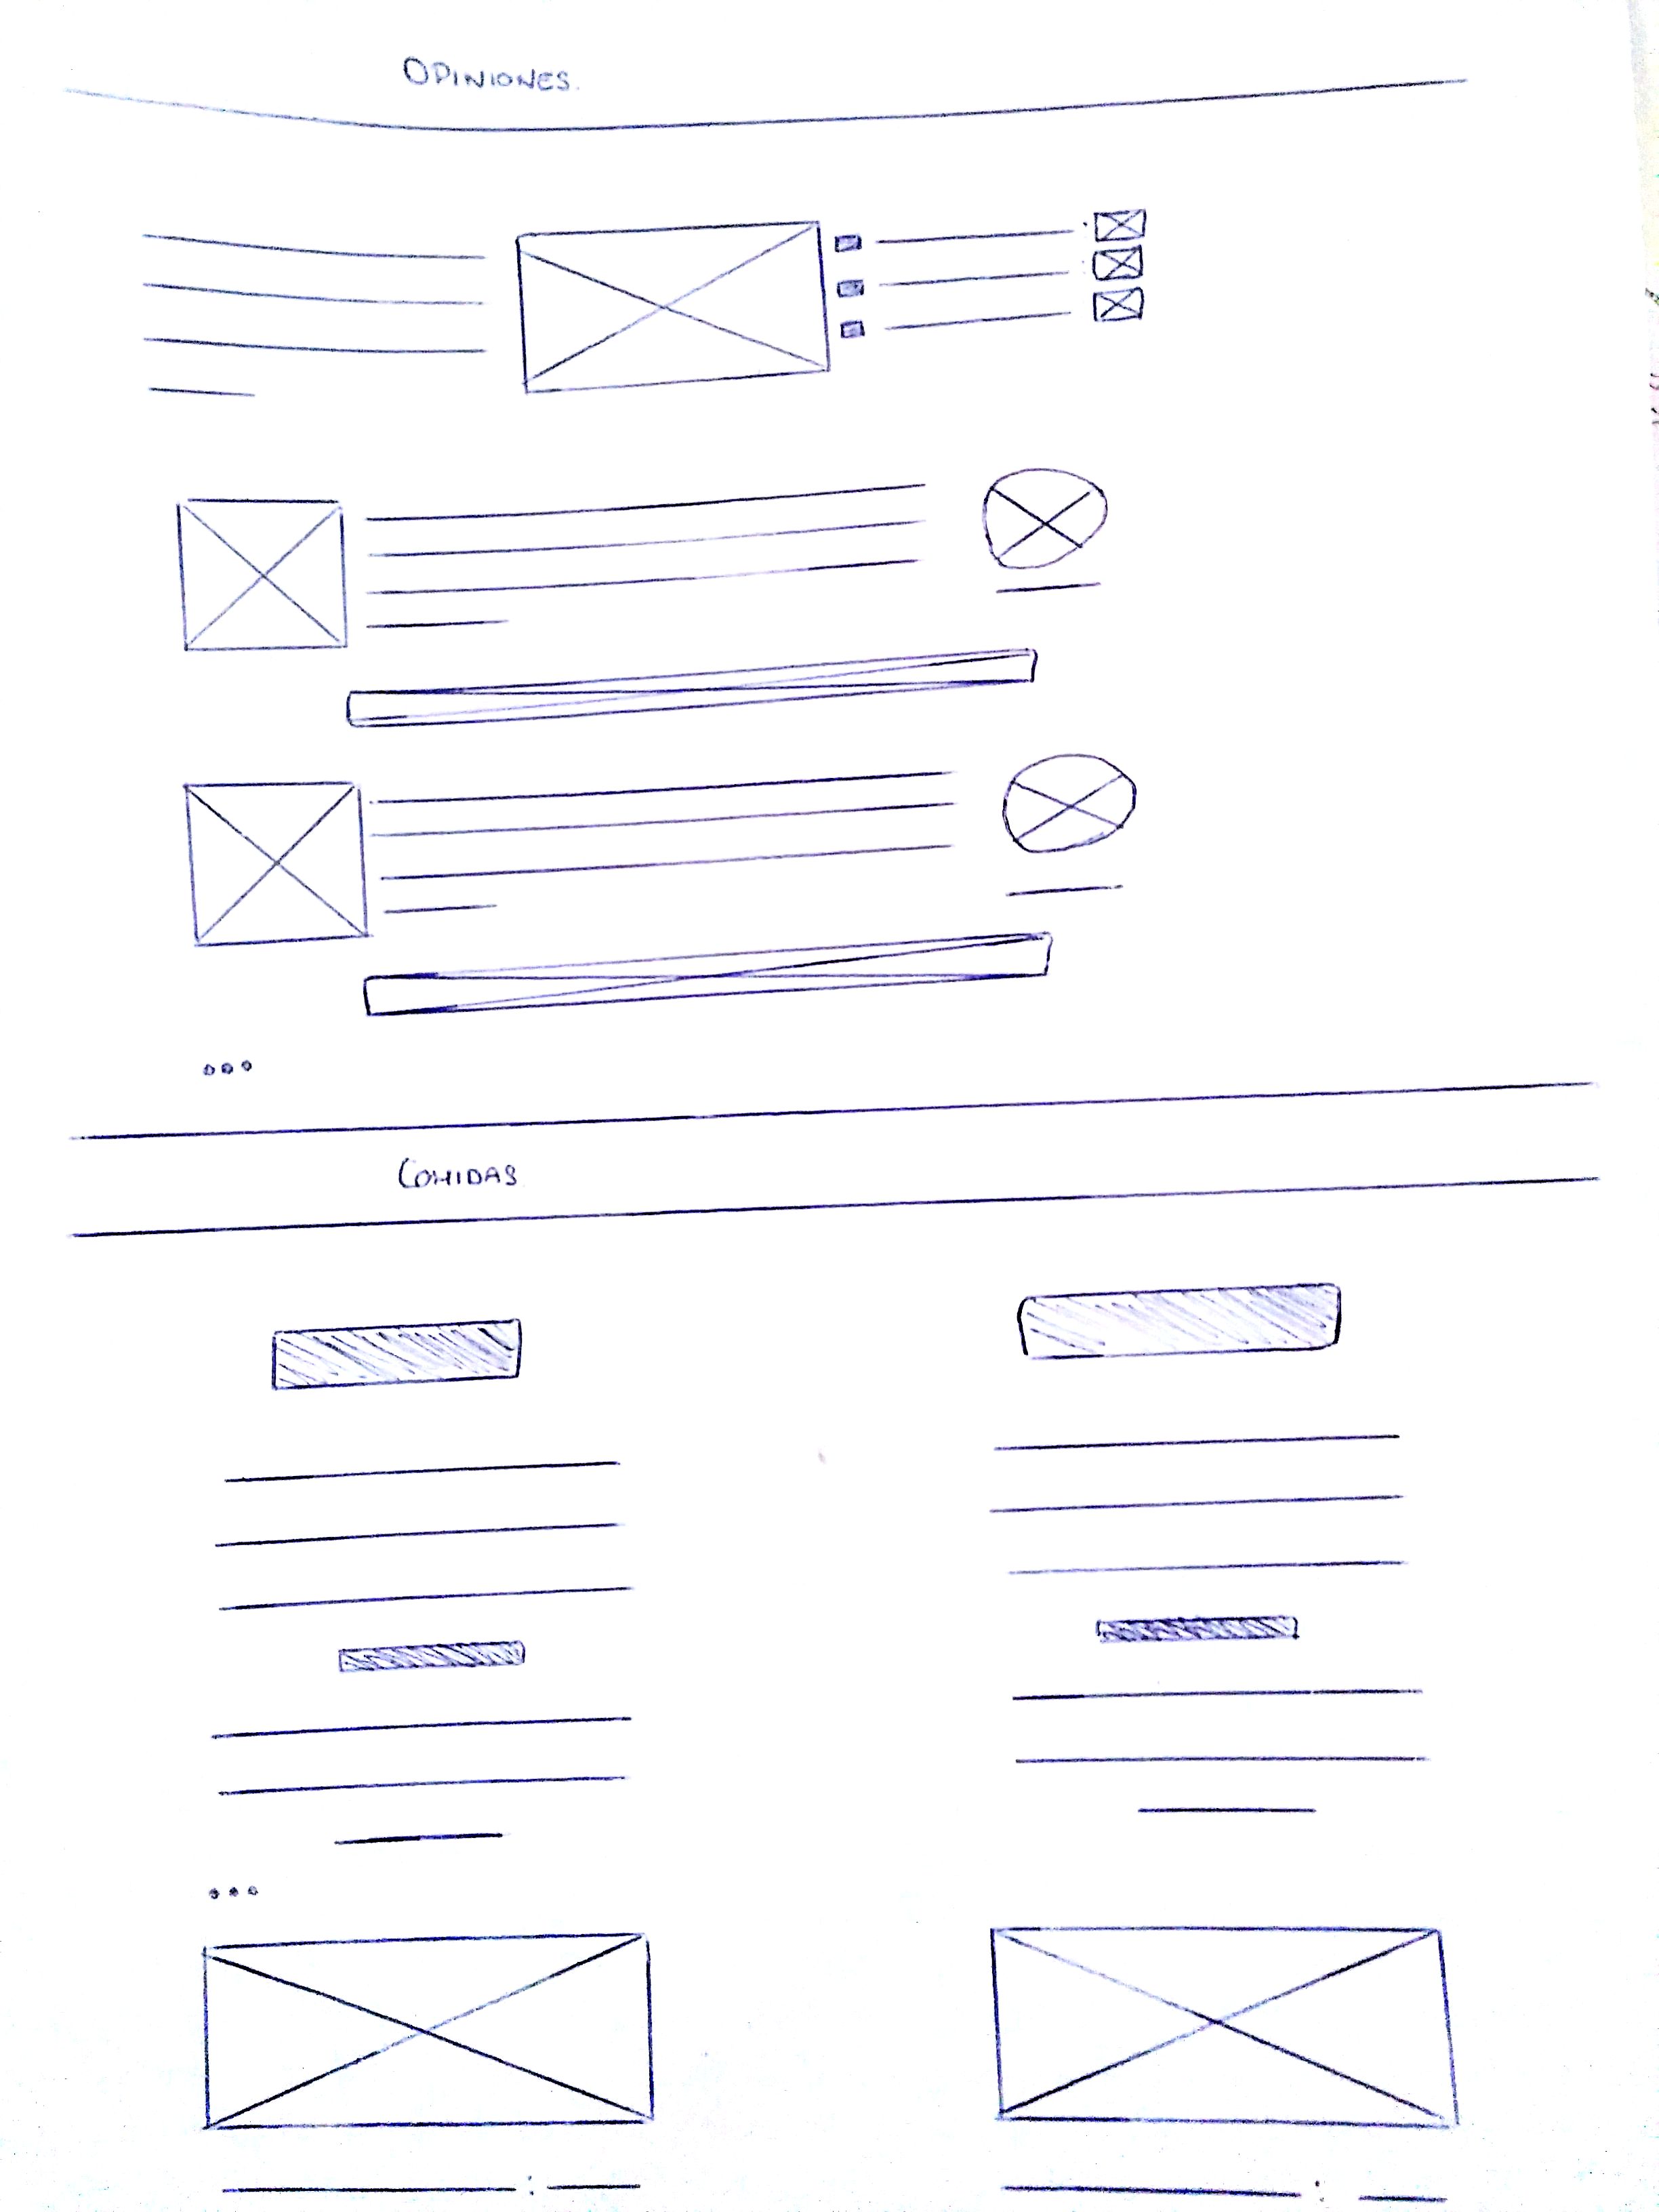 OPINIONES.
COMIDAS